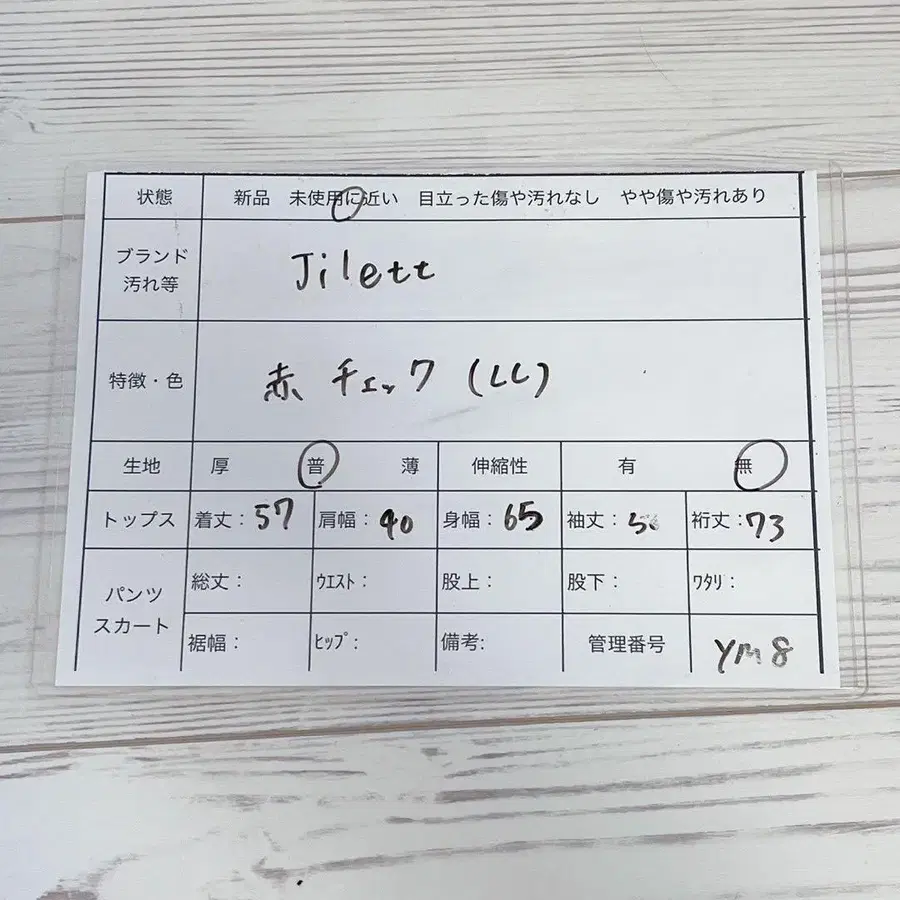 状態 新品 未使用に近い 目立った傷や汚れなし やや傷や汚れあり
ブランド
汚れ等
Jilett
特徴・色 赤 チェック (LL)
生地 厚 普 薄 伸縮性 有 無
トップス 着丈:57 肩幅:40 身幅:65 袖丈: 裄丈:73
パンツ
スカート
総丈: ウエスト: 股上: 股下: ワタリ:
裾幅: ヒップ: 備考: 管理番号 YM8